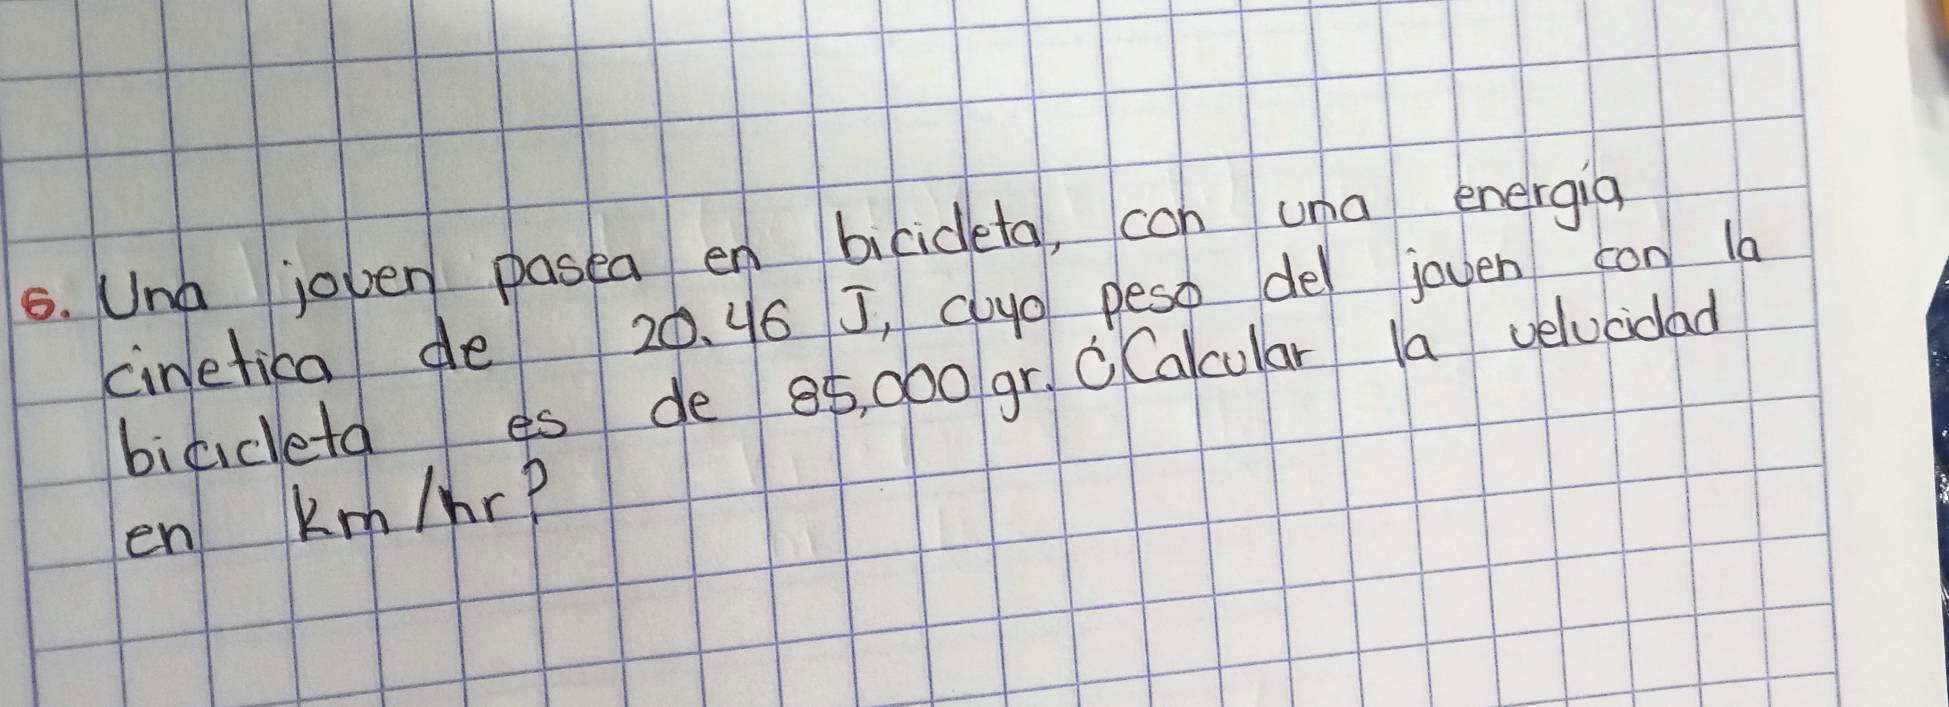 6. Una joven pasea en bicicleta, con una energía
cinetica de 20.46 J, cuyo peso del joven con la
bicicleta es de 85,000 gr. ¿Calcular la velucidad
en Km/hr?